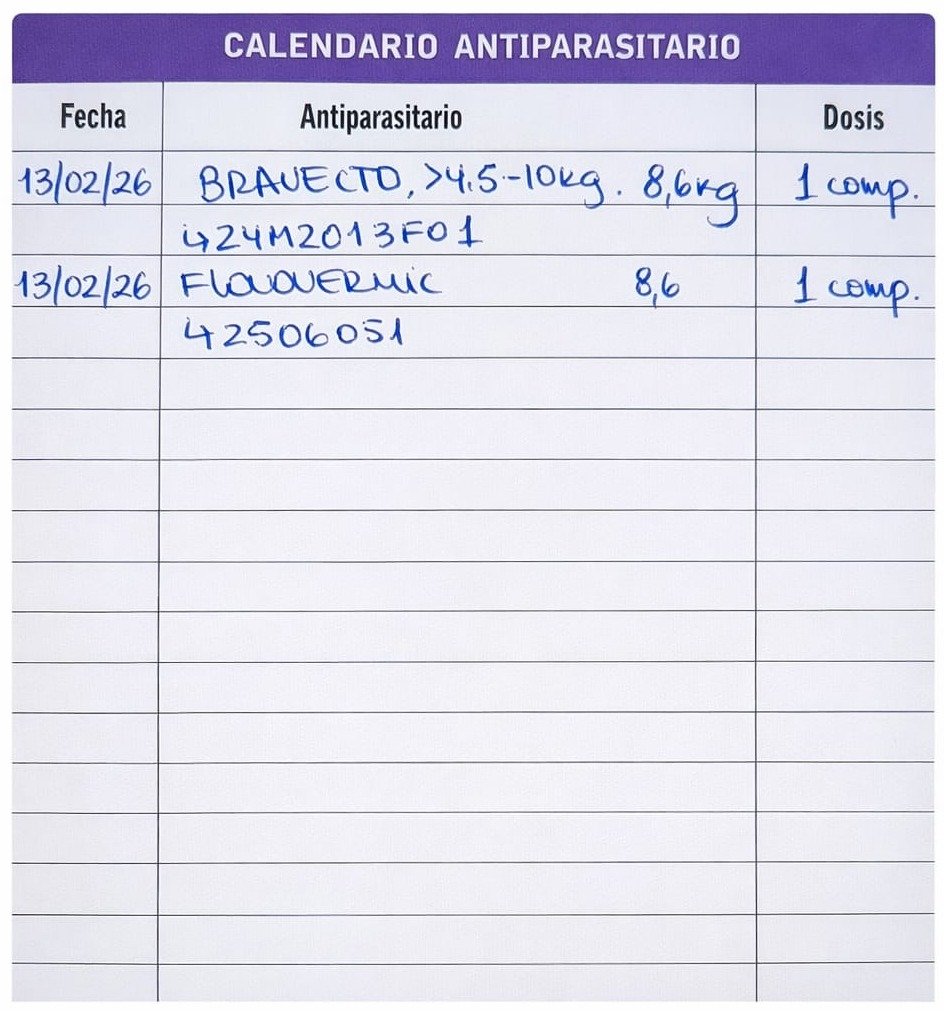 CALENDARIO ANTIPARASITARIO
Fecha Antiparasitario Dosis
13/02/26 BRAVECTO, >4.5-10kg. 8,6kg 1 comp.
424M2013F01
13/02/26 FLOVOVERMIC 8,6 1 comp.
42506051